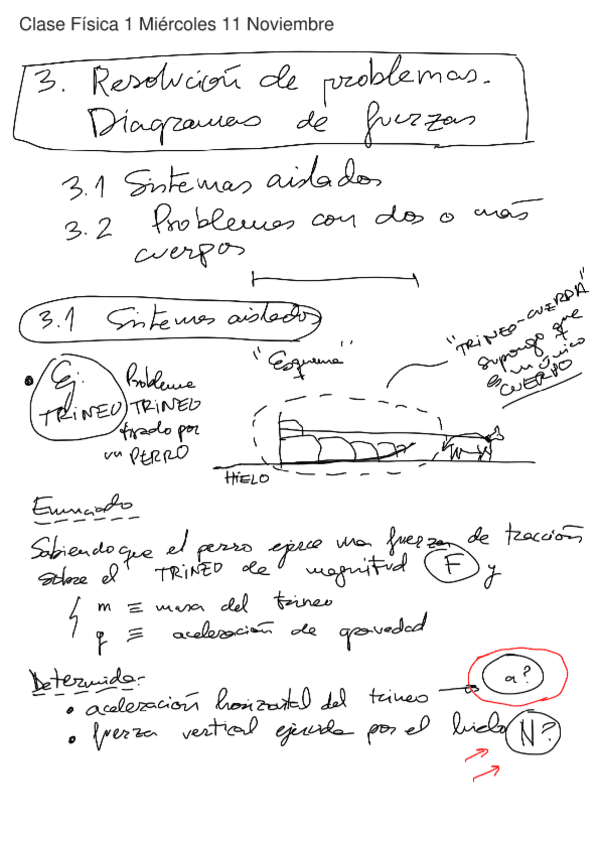 Clase Física 1 Miércoles 11 Noviembre
3. Resolución de problemas.
Diagramas de fuerzas
3.1 Sistemas aislados
3.2 Problemas con dos o más
cuerpos
3.1 Sistemas aislados
• Ej: TRINEO
Problema
TRINEO
tirado por
un PERRO
"Esquema"
"TRINEO-CUERDA"
supongo que
es un único
CUERPO
HIELO
Enunciado
Sabiendo que el perro ejerce una fuerza de tracción
sobre el TRINEO de magnitud F y
m ≡ masa del trineo
g ≡ aceleración de gravedad
Determinida:
• aceleración horizontal del trineo → a?
• fuerza vertical ejercida por el hielo N?